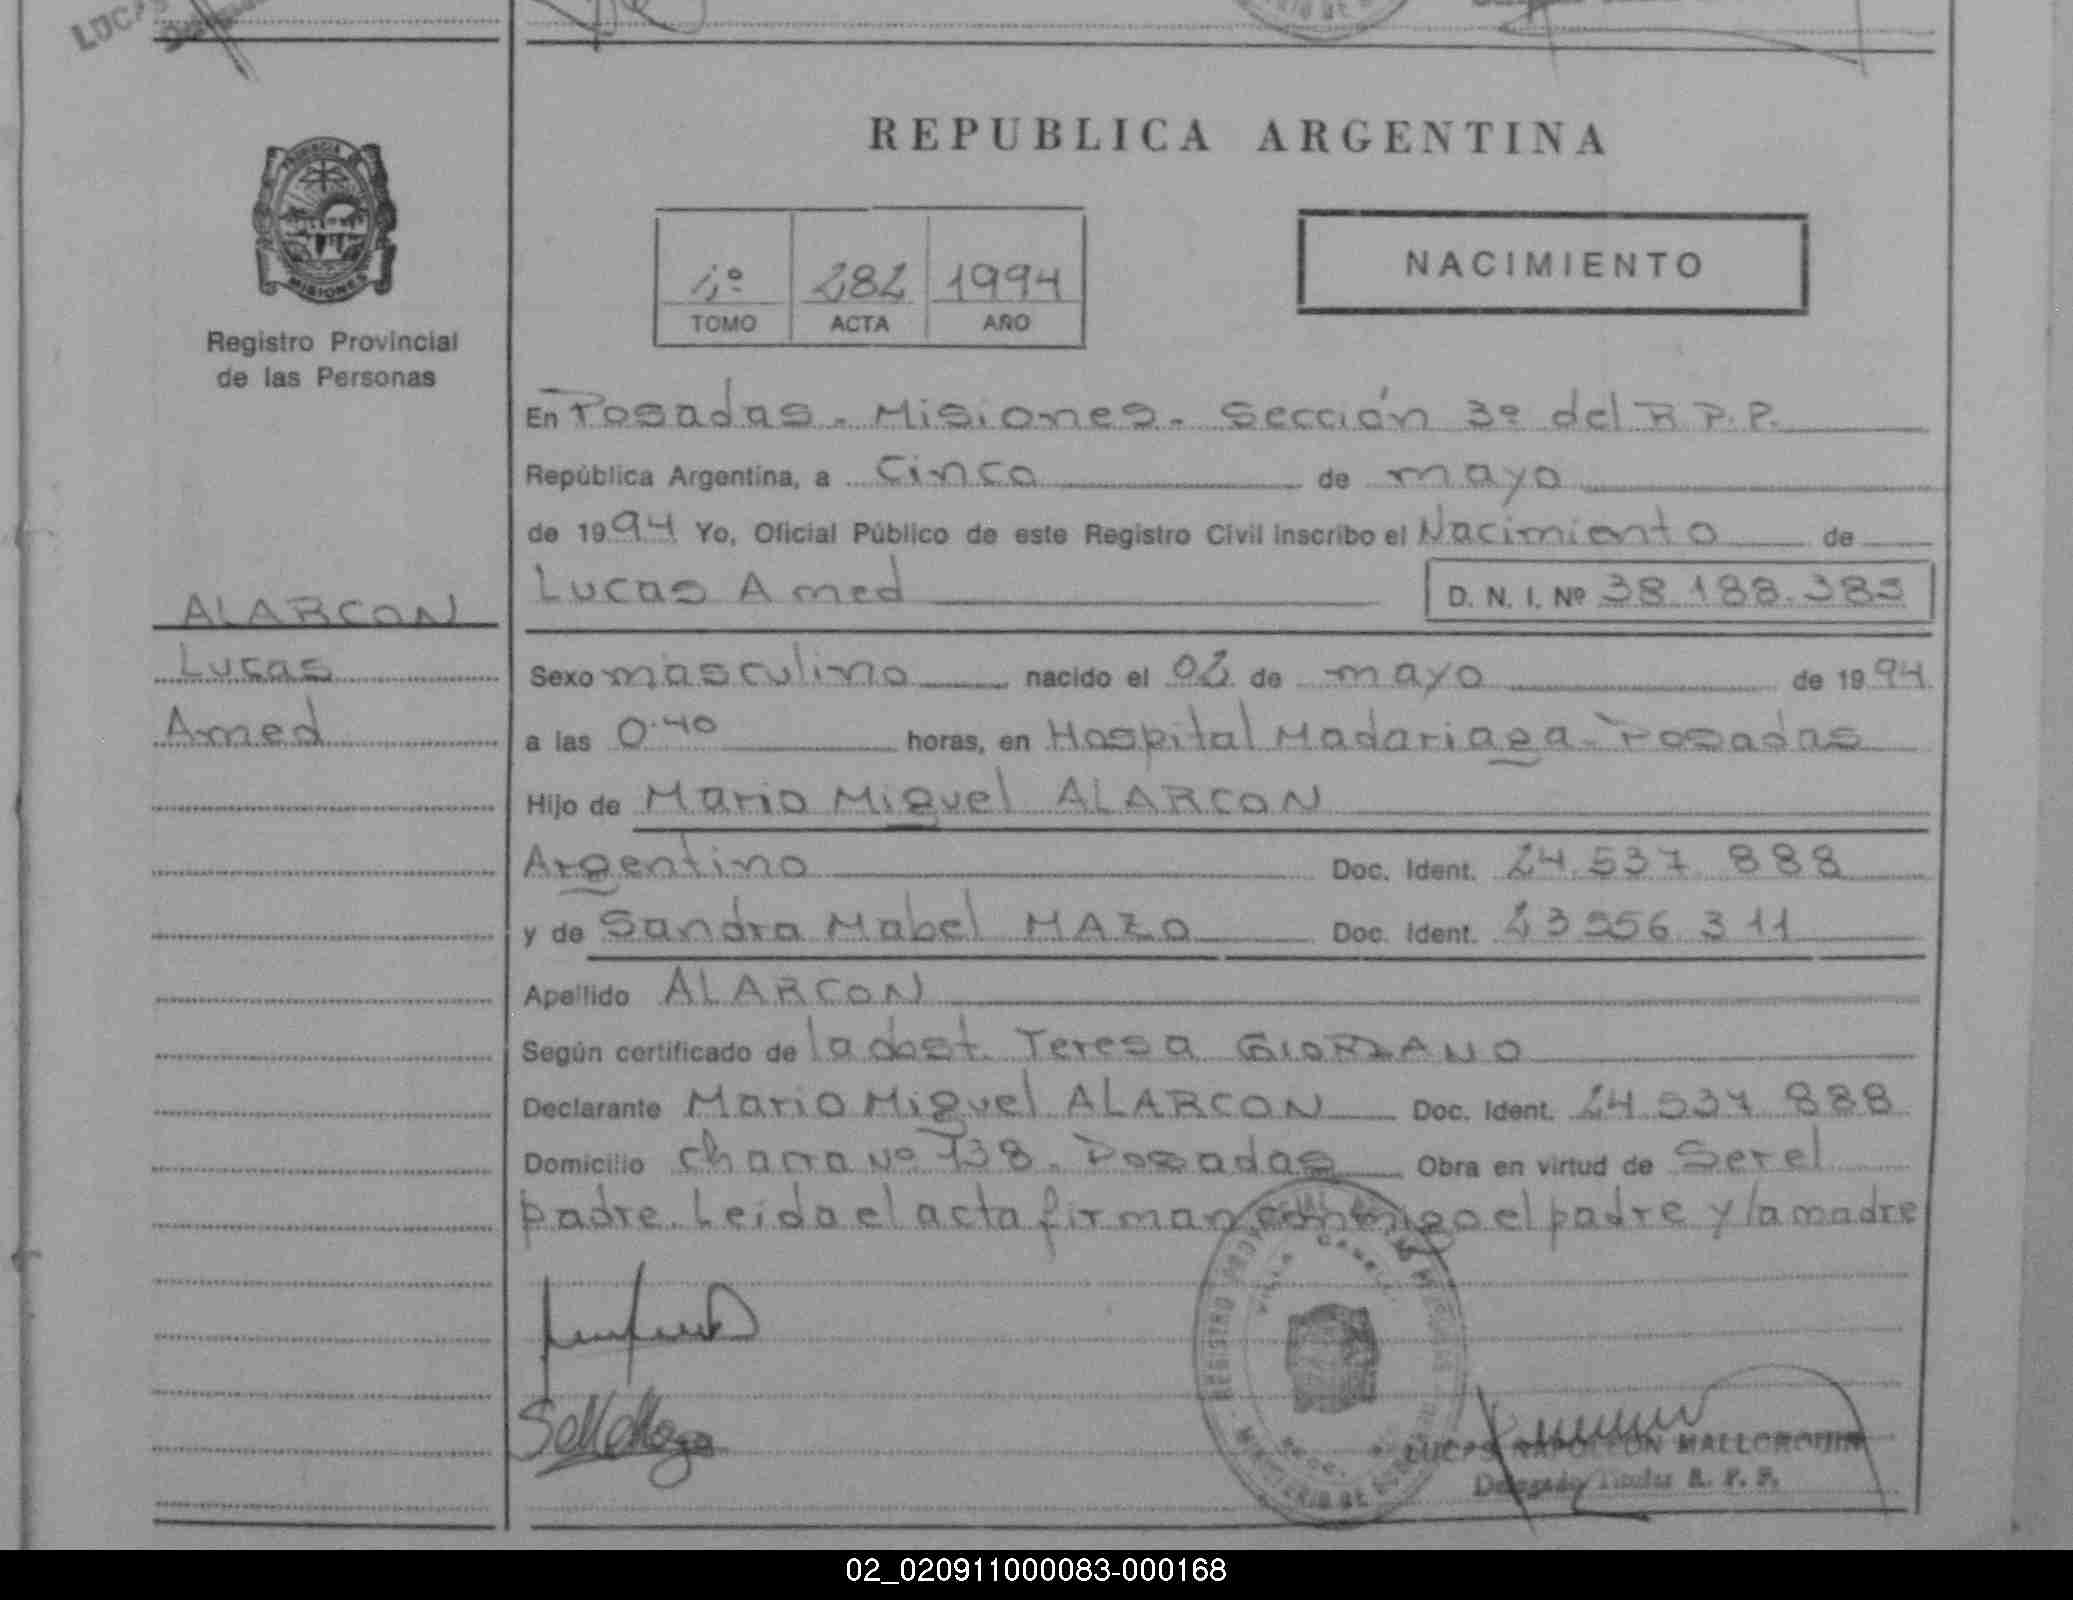 REPUBLICA ARGENTINA
PROVINCIA
MISIONES
Registro Provincial
de las Personas
1º 282 1994
TOMO ACTA AÑO
NACIMIENTO
En Posadas - Misiones - Sección 3º del R.P.P.
República Argentina, a Cinco de mayo
de 1994 Yo, Oficial Público de este Registro Civil inscribo el Nacimiento de
Lucas Amed D. N. I. Nº 38.188.383
ALARCON
Lucas
Amed
Sexo masculino nacido el 02 de mayo de 1994
a las 0.40 horas, en Hospital Madariaga - Posadas
Hijo de Mario Miguel ALARCON
Argentino Doc. Ident. 24.537.888
y de Sandra Mabel MAZO Doc. Ident. 23 556 311
Apellido ALARCON
Según certificado de la obst. Teresa GIORDANO
Declarante Mario Miguel ALARCON Doc. Ident. 24.537 888
Domicilio chacra Nº 138. Posadas Obra en virtud de Ser el
padre. Leida el acta firman conmigo el padre y la madre
REGISTRO PROVINCIAL DE LAS PERSONAS
LUCAS NAPOLEON MALLORQUIN
Delegado Titular R. P. P.
02_020911000083-000168